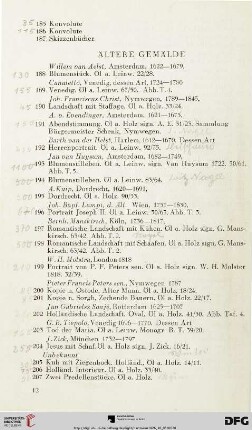 185 Konvolute
186 Konvolute
187 Skizzenbücher
ÄLTERE GEMÄLDE
Willem van Aelst, Amsterdam, 1622—1679.
188 Blumenstück. Öl a. Leinw. 22/28.
Canaletto, Venedig, dessen Art, 1724—1780
189 Venedig. Öl a. Leinw. Abb. T. 4.
Joh. Franciscus Christ, Nymwegen, 1789—1845.
190 Landschaft mit Staffage. Öl a. Holz.
A. v. Everdingen, Amsterdam, 1621—1675.
191 Abendstimmung. Öl a. Holz sign. A. E. Sammlung
Bürgermeister Schenk, Nymwegen.
Barth van der Helst, Harlem, 1612—1670. Dessen Art
192 Herrenportrait. Öl a. Leinw. 92/75.
Jan van Huysum, Amsterdam, 1682—1749.
193 Blumenstilleben. Öl a. Leinw. sign. Van Huysum 1722.
Abb. T. 5.
194 Blumenstilleben. Öl a. Leinw.
A. Kuip, Dordrecht, 1620—1691.
195 Dordrecht. Öl a. Holz
Joh. Bapt. Lampi, d. Ält. Wien, 1751—1830.
196 Portrait Joseph II. Öl a. Leinw. Abb. T. 5.
197 Romantische Landschaft mit Kühen. Öl a. Holz sign. G. Mans-
kirsch. 63/42. Abb. T. 2.
198 Romantische Landschaft mit Schafen. Öl a. Holz sign. G. Mans-
kirsch. 63/42. Abb. T. 2.
W. H. London 1818
199 Portrait von P. F. Peters sen. Öl a. Holz sign. W. H.
1818. 32/39.
Pieter Francis Peters sen., Nymwegen 1787
200 Kopie a. Ostade. Alter Mann. Öl a. Holz. 18/24.
201 Kopie n. Sorgh, Zechende Bauern. Öl a. Holz. 22/17.
Jan Gabrielsz Sonje, Rotterdam 1625—1707
202 Holländische Landschaft, Oval, Öl a. Holz 41/30. Abb. Taf. 4.
G. B. Tiepolo, Venedig Dessen Art
203 Tod der Maria. Öl a. Leinw. Monogr. B. T. 59/20.
J. Zick, München 1732—1797
204 Jesus mit Schaf. Öl a. Holz sign. J. Zick. 16/21.
Unbekannt
205 Kuh mit Ziegenbock. Holländ., Öl a. Holz.
206 Holländ. Interieur. Öl a. Holz 33/40.
207 Zwei Predellenstücke. Öl a. Holz.
12
UNIVERSITÄTS-
BIBLIOTHEK
HEIDELBERG
DFG